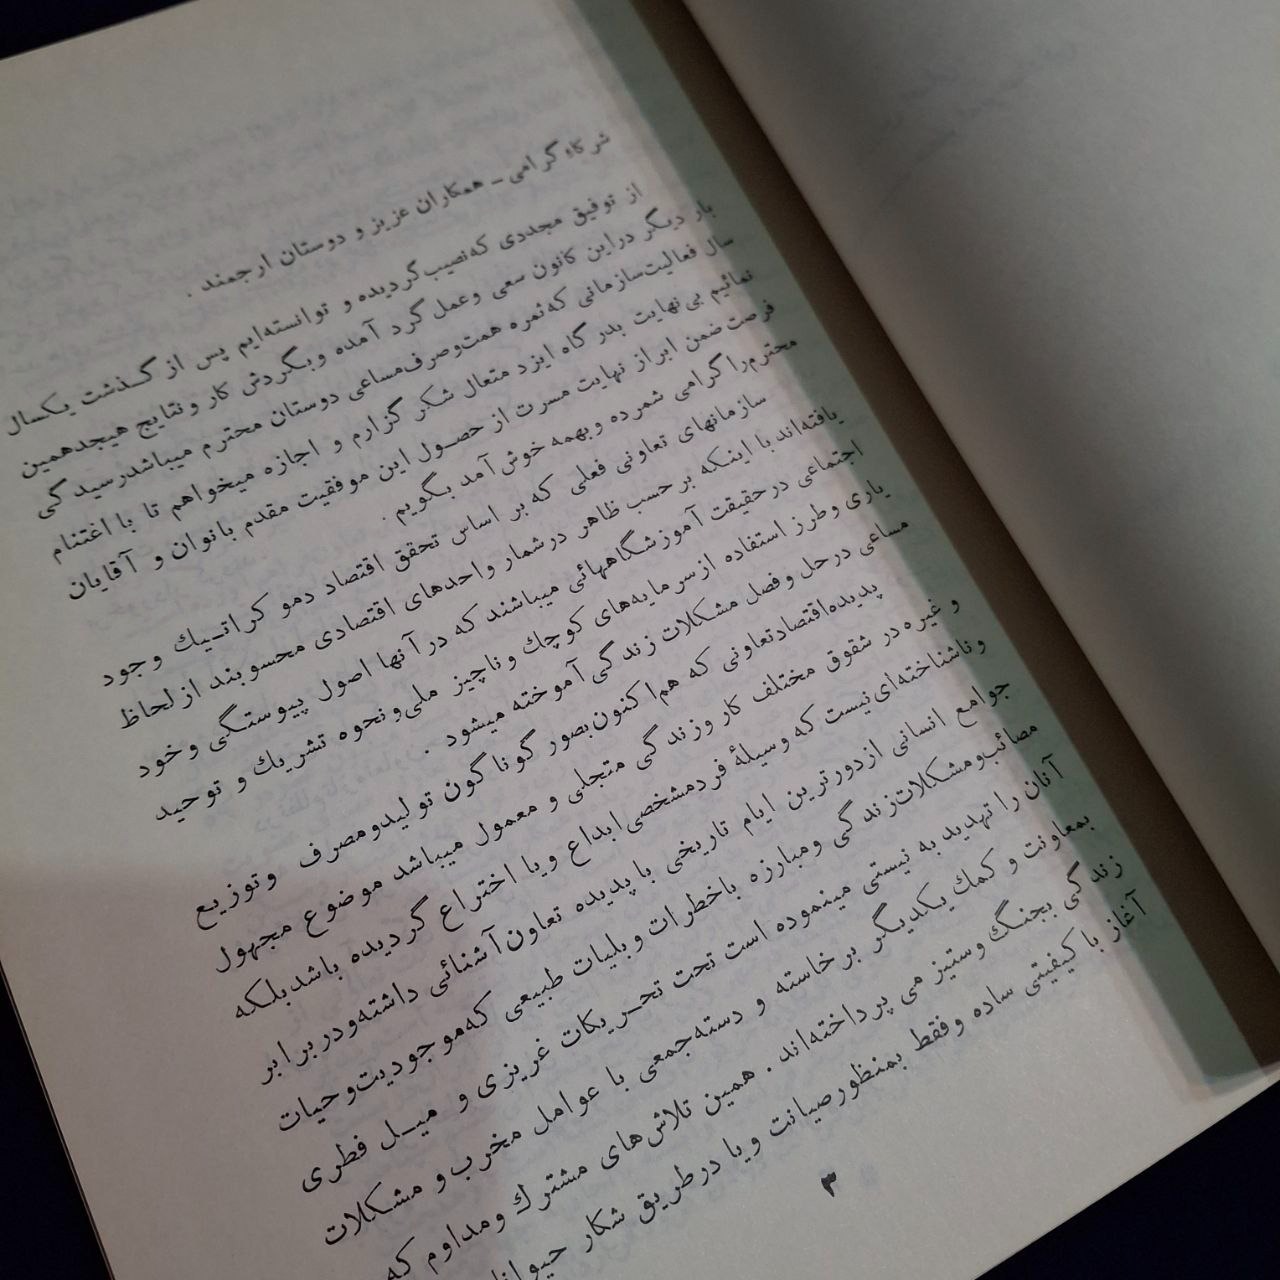 شرکاء گرامی ـ همکاران عزیز و دوستان ارجمند .
از توفیق مجددی که نصیب گردیده و توانسته‌ایم پس از گـذشت یکسال
بار دیگر در این کانون سعی و عمل گرد آمده و بگردش کار و نتایج هیجدهمین
سال فعالیت سازمانی که ثمره همت و صرف مساعی دوستان محترم میباشد رسیدگی
نمائیم بی نهایت بدرگاه ایزد متعال شکر گزارم و اجازه میخواهم تا با اغتنام
فرصت ضمن ابراز نهایت مسرت از حصـول این موفقیت مقدم بانوان و آقایان
محترم را گرامی شمرده و بهمه خوش آمد بگویم .
سازمانهای تعاونی فعلی که بر اساس تحقق اقتصاد دموکراتـیك وجود
یافته‌اند با اینـکه بر حسب ظاهر در شمار واحدهای اقتصادی محسوبند از لحاظ
اجتماعی در حقیقت آموزشگاههائی میباشند که در آنها اصول پیوستگی و خود
یاری و طرز استفاده از سرمایه‌های کوچك و ناچیز ملی و نحوه تشریك و توحید
مساعی در حل و فصل مشکلات زندگی آموخته میشود .
پدیده اقتصاد تعاونی که هم اکنون بصور گوناگون تولید و مصرف و توزیع
و غیره در شقوق مختلف کار و زندگی متجلی و معمول میباشد موضوع مجهول
و ناشناخته‌ای نیست که وسیلهٔ فرد مشخصی ابداع و یا اختراع گردیده باشد بلـکه
جوامع انسانی از دورترین ایام تاریخی با پدیده تعاون آشنائی داشته و در برابر
مصائب و مشکلات زندگی و مبارزه با خطرات و بلیات طبیعی که موجودیت و حیات
آنان را تهدید به نیستی مینموده است تحت تحـریکات غریزی و میـل فطری
بمعاونت و کمك یکدیگر برخاسته و دسته جمعی با عوامل مخرب و مشـکلات
زندگی بجنگ و ستیز می پرداخته‌اند . همین تلاش‌های مشترك و مداوم که
آغاز با کیفیتی ساده و فقط بمنظور صیانت و یا در طریق شکار
۳